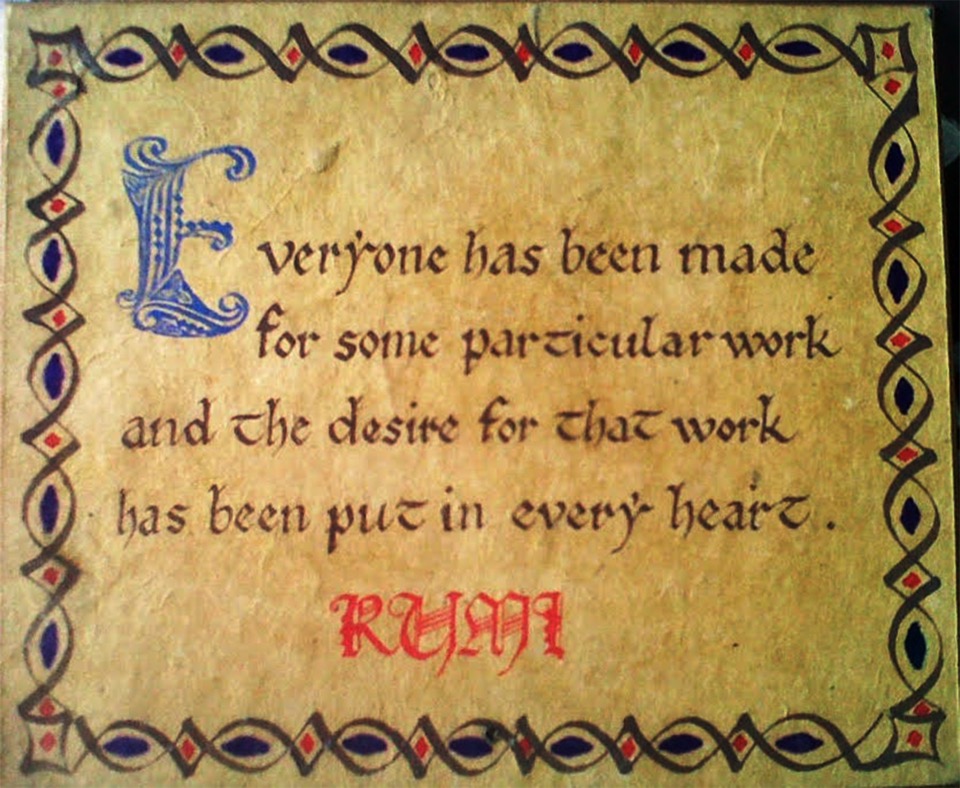 Everyone has been made
for some particular work
and the desire for that work
has been put in every heart.
RUMI